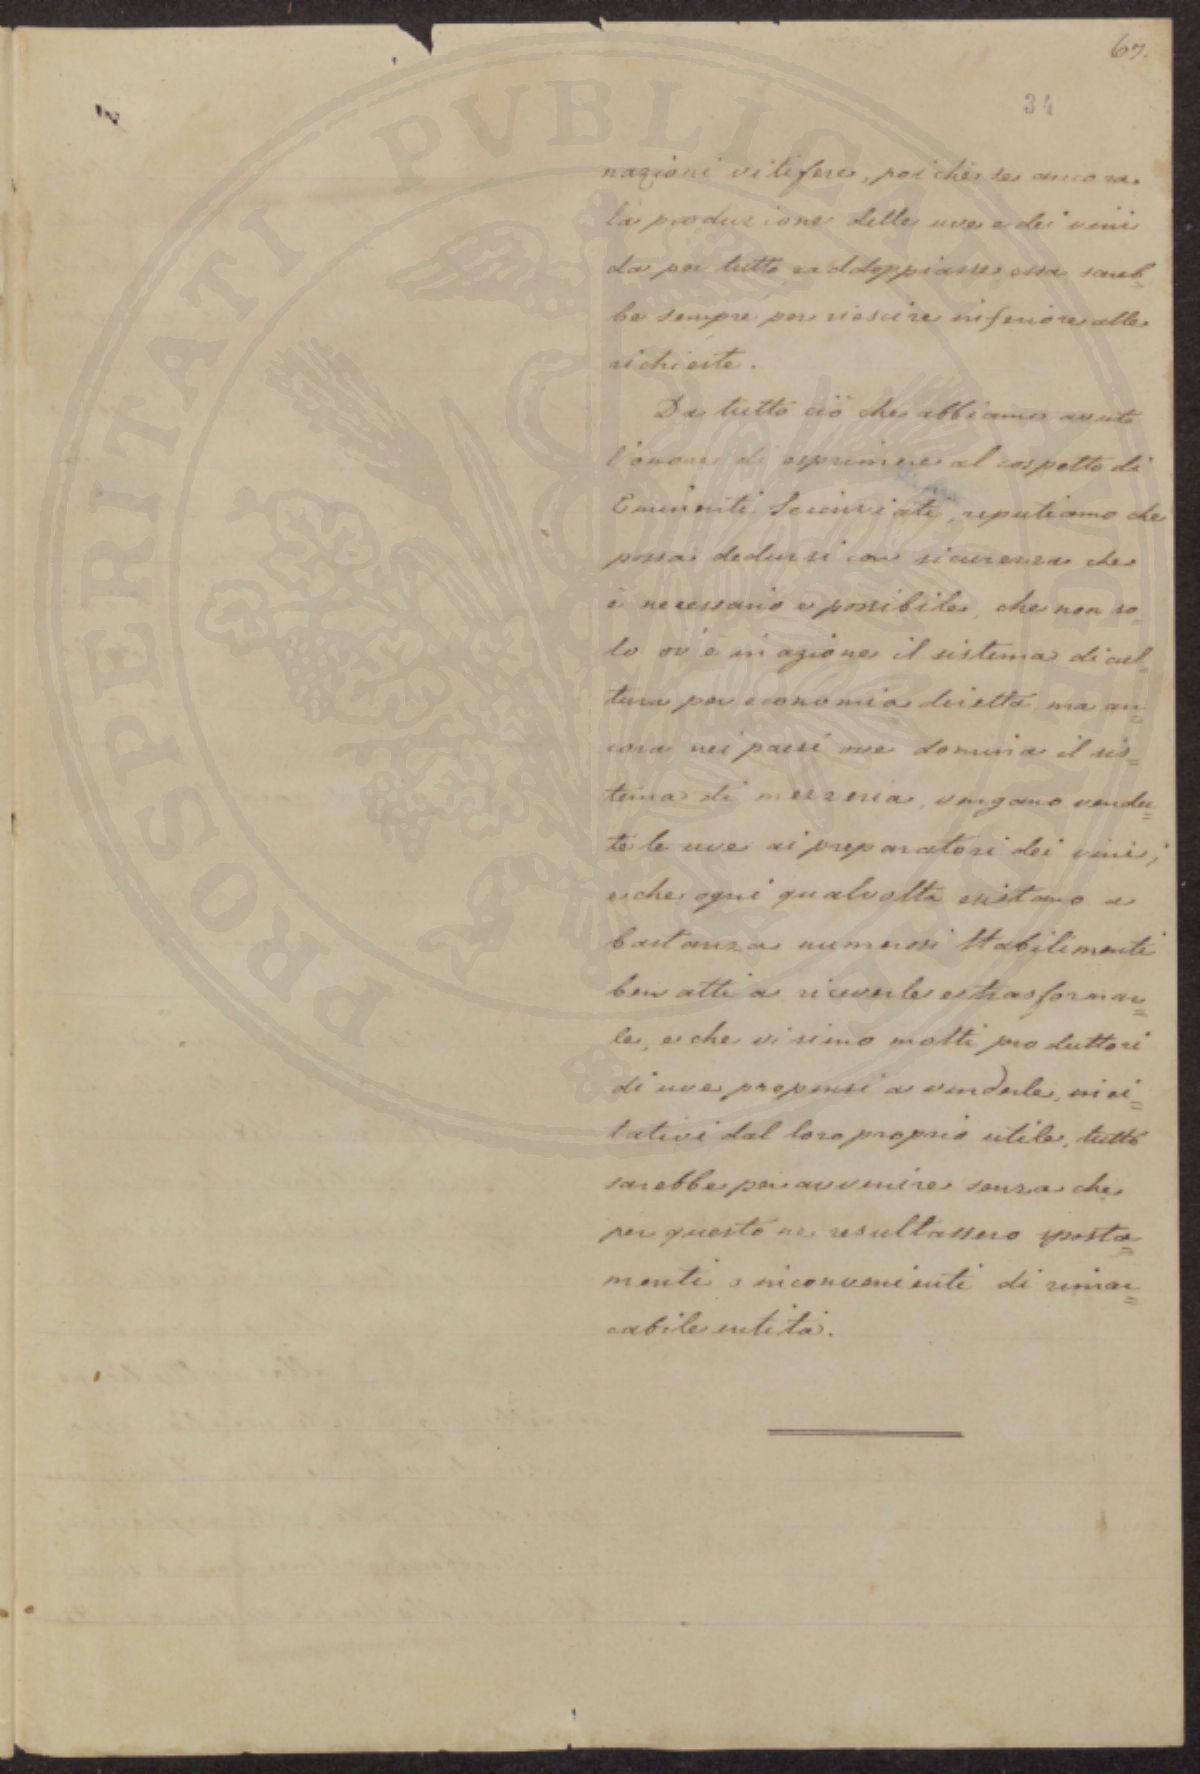 67.
34
nazioni vitifere, poichè se ancora
la produzione delle uve e dei vini
da per tutto raddoppiasse, essa sareb=
be sempre per riescire inferiore alle
richieste.
Da tutto ciò che abbiamo avuto
l'onore di esprimere al cospetto di
Eminenti Scienziati, reputiamo che
possa dedursi con sicurezza che
è necessario e possibile, che non so=
lo ov'è in azione il sistema di cul=
tura per economia diretta ma an=
cora nei paesi ove domina il sis=
tema di mezzeria, vengano vendu=
te le uve ai preparatori dei vini;
e che ogni qualvolta esistano a
bastanza numerosi Stabilimenti
ben atti a riceverle e trasformar=
le, e che vi sieno molti produttori
di uve propensi a venderle, inci=
tativi dal loro proprio utile, tutto
sarebbe per avvenire senza che
per questo ne resultassero sposta=
menti o inconvenienti di rimar=
cabile entità.
PROSPERITATI PVBLICAE